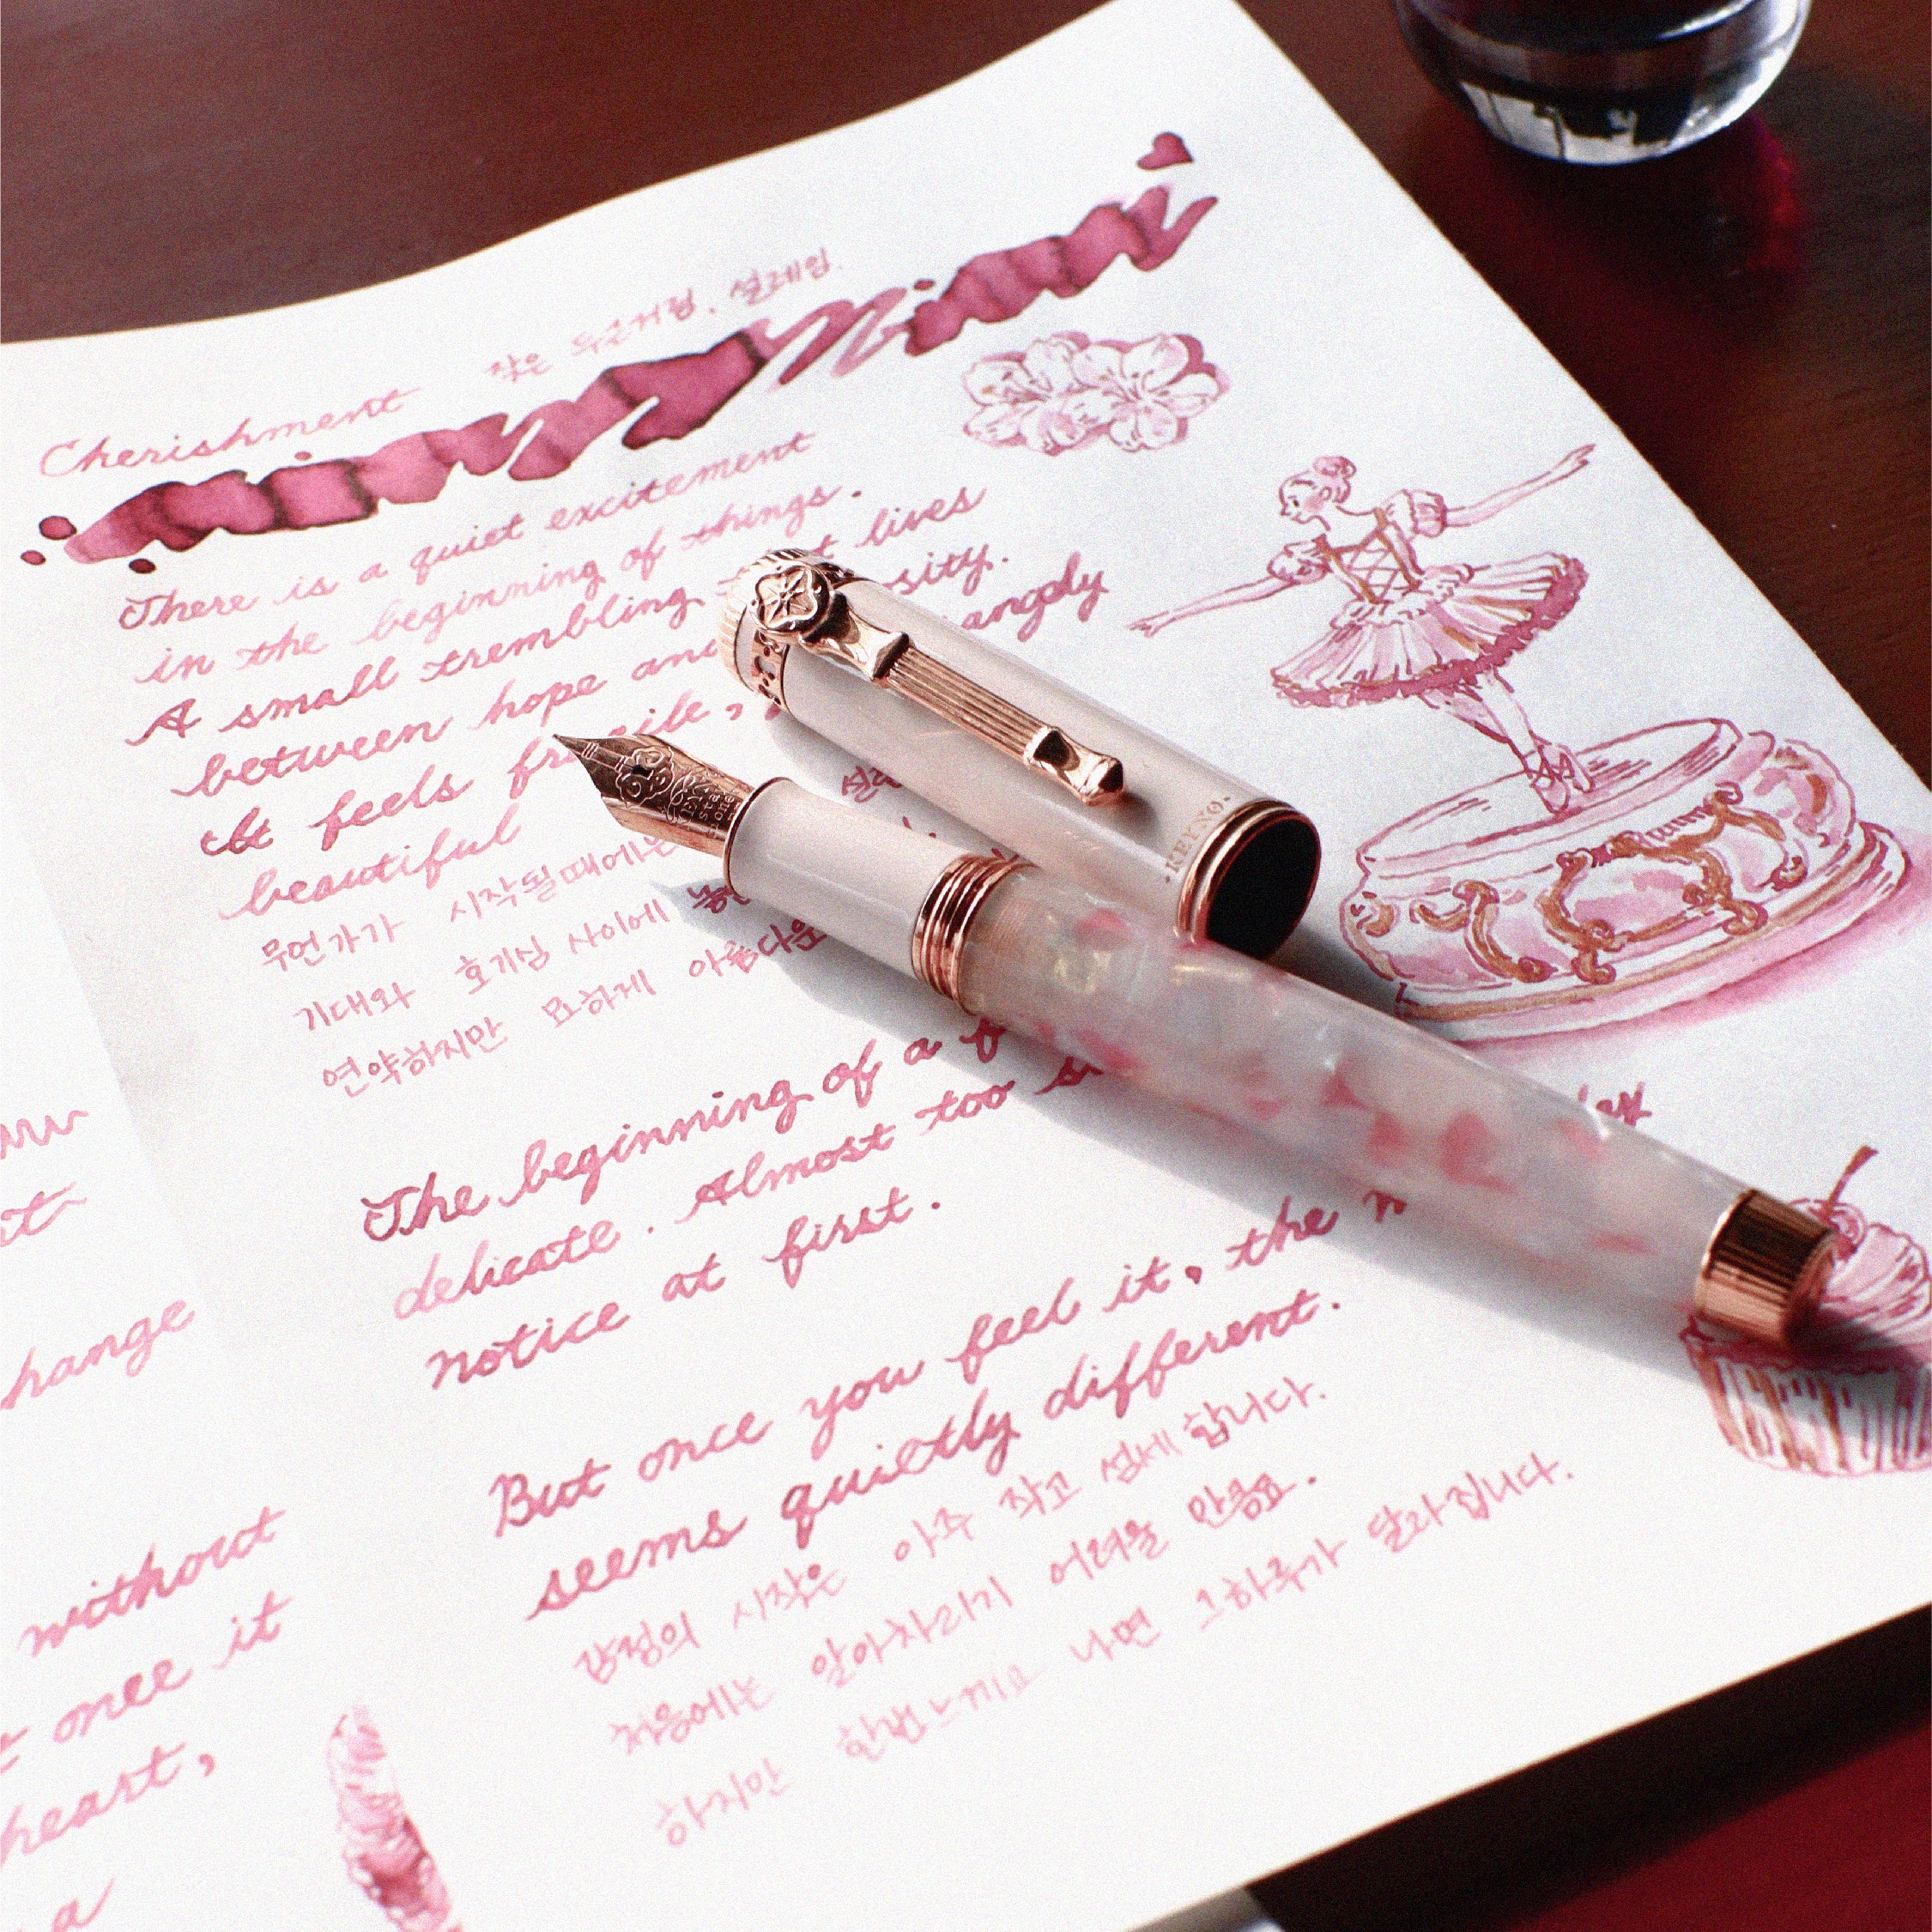 Cherishment
작은 두근거림, 설레임
There is a quiet excitement
in the beginning of things.
A small trembling lives
between hope and
It feels fragile,
beautiful
무언가가 시작될때에는
기대와 호기심 사이에
연약하지만 묘하게 아름다운
The beginning of a
delicate. Almost too
notice at first.
But once you feel it, the
seems quietly different.
감정의 시작은 아주 작고 섬세합니다.
처음에는 알아차리기 어려울 만큼요.
하지만 한번 느끼고 나면 그하루가 달라집니다.
hange
without
once it
heart,
a
KEFXO.